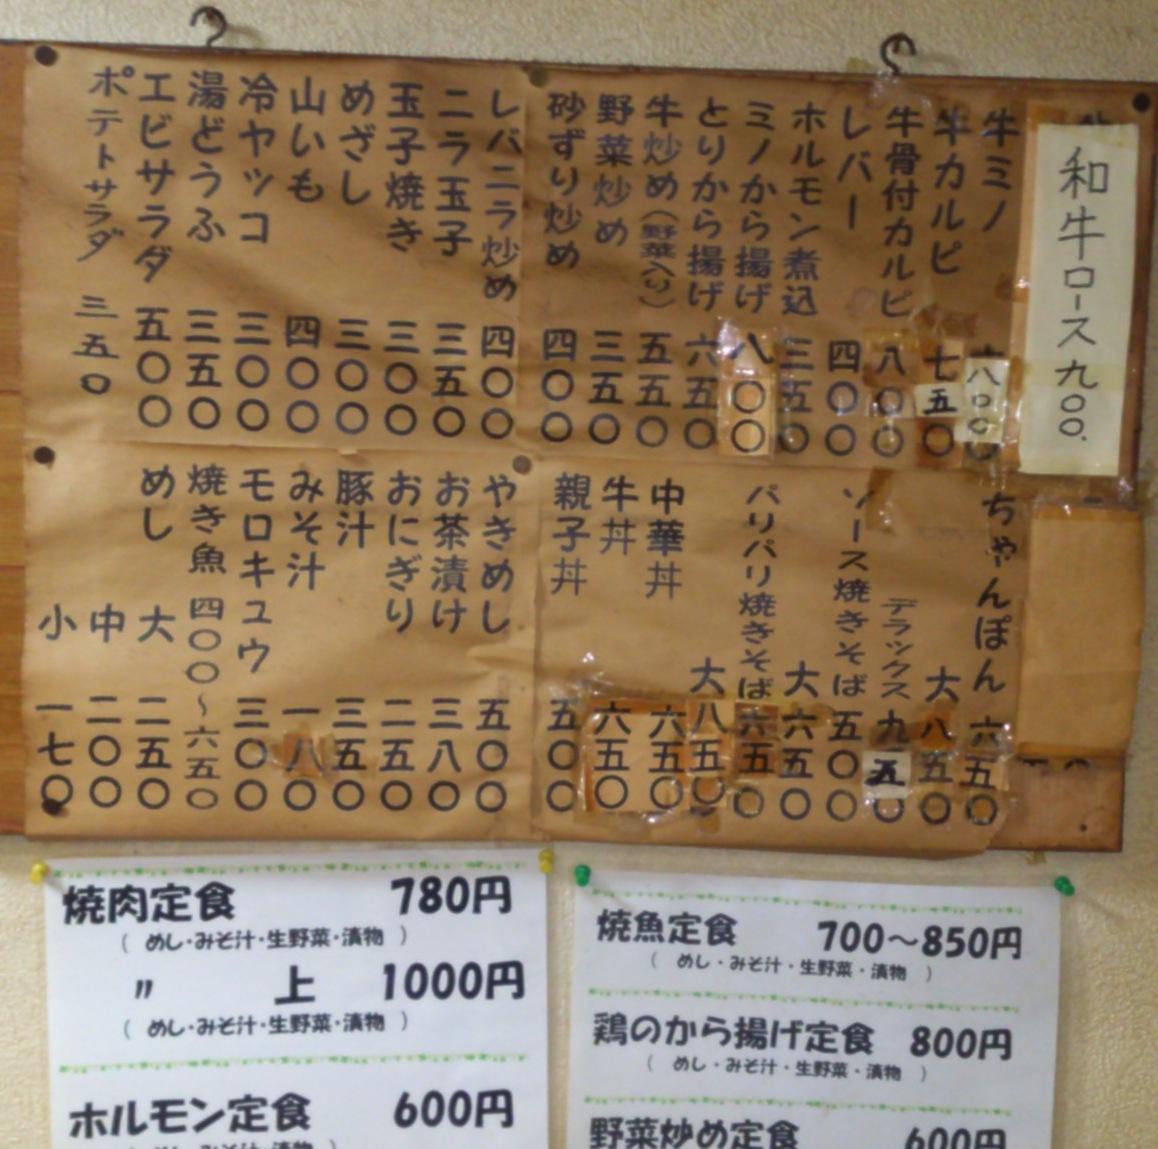 和牛ロース 九〇〇.
牛ミノ 八〇〇
牛カルビ 七五〇
牛骨付カルビ 八〇〇
レバー 四〇〇
ホルモン煮込 三五〇
ミノから揚げ 八〇〇
とりから揚げ 六五〇
牛炒め(野菜入り) 五五〇
野菜炒め 三五〇
砂ずり炒め 四〇〇
レバニラ炒め 四〇〇
ニラ玉子 三五〇
玉子焼き 三〇〇
めざし 三〇〇
山いも 四〇〇
冷ヤッコ 三〇〇
湯どうふ 三五〇
エビサラダ 五〇〇
ポテトサラダ 三五〇
ちゃんぽん 六五〇
大 八五〇
デラックス 九五〇
ソース焼きそば 五〇〇
大 六五〇
パリパリ焼きそば 六五〇
大 八五〇
中華丼 六五〇
牛丼 六五〇
親子丼 五〇〇
やきめし 五〇〇
お茶漬け 三八〇
おにぎり 二五〇
豚汁 三五〇
みそ汁 一八〇
モロキュウ 三〇〇
焼き魚 四〇〇〜六五〇
めし 大 二五〇
中 二〇〇
小 一七〇
焼肉定食 780円
( めし・みそ汁・生野菜・漬物 )
〃 上 1000円
( めし・みそ汁・生野菜・漬物 )
ホルモン定食 600円
焼魚定食 700〜850円
( めし・みそ汁・生野菜・漬物 )
鶏のから揚げ定食 800円
( めし・みそ汁・生野菜・漬物 )
野菜炒め定食 600円